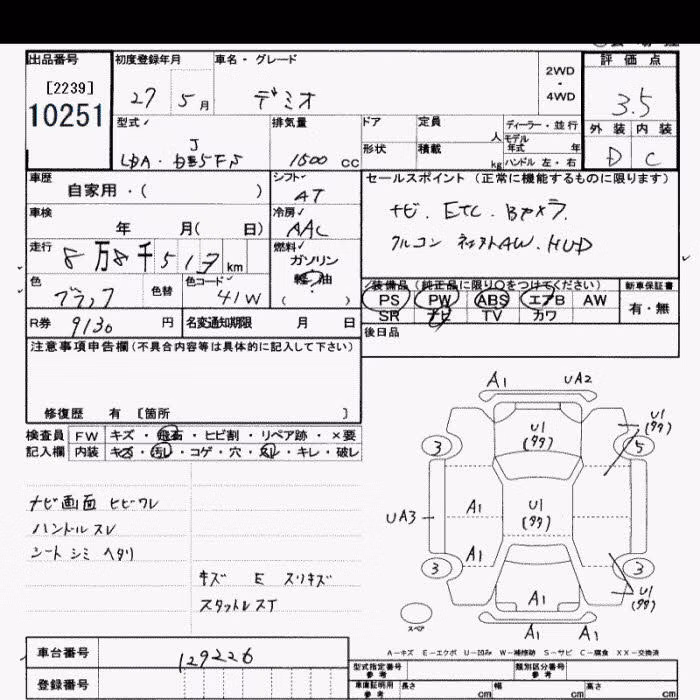 出品番号 初度登録年月 車名・グレード 2WD・4WD 評価点
[2239]
10251
27 5月 デミオ 3.5
型式 排気量 ドア 定員 人 ディーラー・並行 外装 内装
モデル年式 年式
LDA・DJ5FS 1500cc 形状 積載 kg ハンドル 左・右 D C
車歴 シフト セールスポイント(正常に機能するものに限ります)
自家用・( ) AT
車検 冷房 ナビ. ETC. Bカメラ.
年 月( 日) AAC
走行 燃料 クルコン AW. HUD
8万8千517km ガソリン
軽油
( )
色 色替 色コード 装備品(純正品に限り○をつけてください) 新車保証書
ブラック 41W PS PW ABS エアB AW 有・無
SR ナビ TV カワ
R券 9130円 名変通知期限 月 日 後日品
注意事項申告欄(不具合内容等は具体的に記入して下さい)
修復歴 有 [箇所 ]
検査員 FW キズ・飛石・ヒビ割・リペア跡・×要
記入欄 内装 キズ・汚レ・コゲ・穴・スレ・キレ・破レ
ナビ画面 ヒビワレ
ハンドルスレ
シート シミ ヘタリ
キズ E スリキズ
スタットレスT
A1 UA2
U1
(タタ)
U1
(タタ)
3 5
A1
U1
(タタ)
UA3
A1
3 3
U1
(タタ)
A1
スペア A1 A1
A−キズ E−エクボ U−凹み W−補修跡 S−サビ C−腐食 XX−交換済
車台番号 129226
型式指定番号 参考 類別区分番号 参考
登録番号 車庫証明用 参考 長さ cm 幅 cm 高さ cm